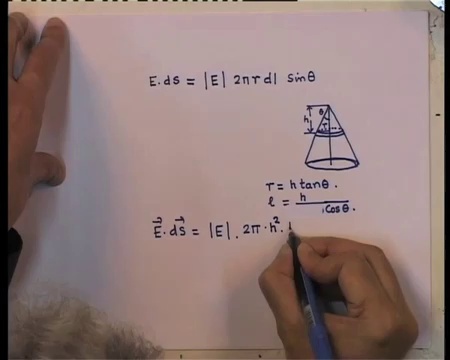 E. ds = |E| 2πr dl sinθ
θ
h
r
r = h tanθ.
l = h / cosθ.
E⃗. ds⃗ = |E| . 2π . h².